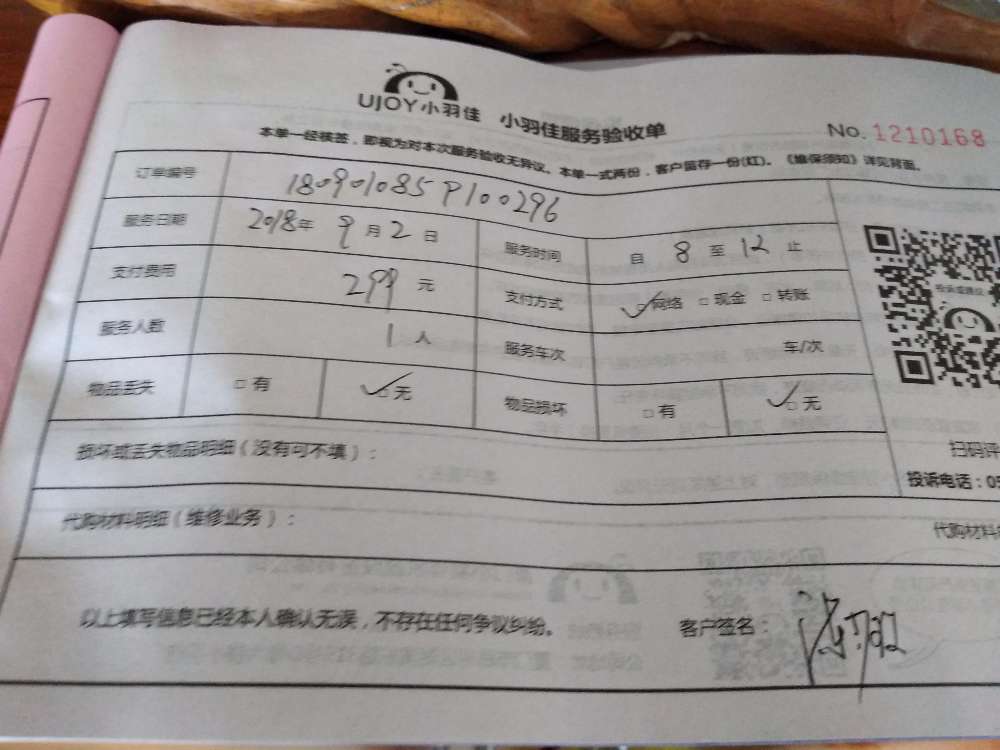 UJOY小羽佳 小羽佳服务验收单 No. 1210168
本单一经核签，即视为对本次服务验收无异议。本单一式两份，客户留存一份(红)。《维保须知》详见背面。
订单编号 180901085P100296
服务日期 2018年 9月2日 服务时间 自 8 至 12 止
支付费用 299 元 支付方式 ☑网络 □现金 □转账
服务人数 1人 服务车次 车/次
物品丢失 □有 ☑无 物品损坏 □有 ☑无
投诉或建议
损坏或丢失物品明细（没有可不填）：
扫码评
投诉电话：05
代购材料明细（维修业务）：
代购材料
以上填写信息已经本人确认无误，不存在任何争议纠纷。 客户签名：